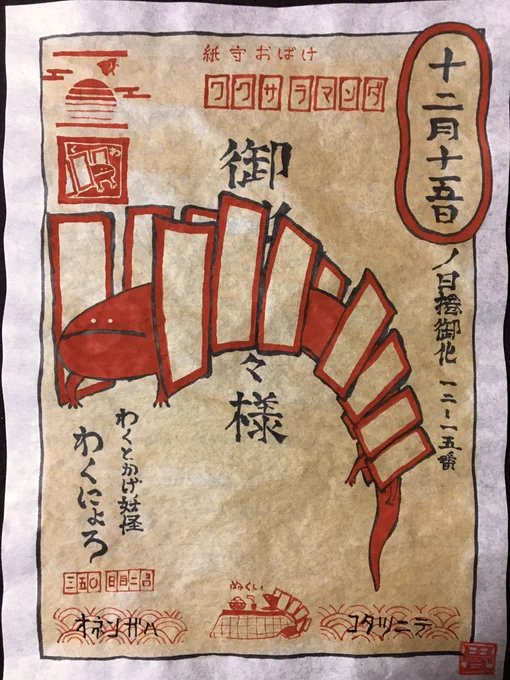 紙守おばけ
ワクサラマンダ
十二月十五日
ノ日捲御化 一二〜一五番
御
々様
わくとかげ妖怪
わくによろ
三五〇
ぬくい
オネンガハ
コタツニテ